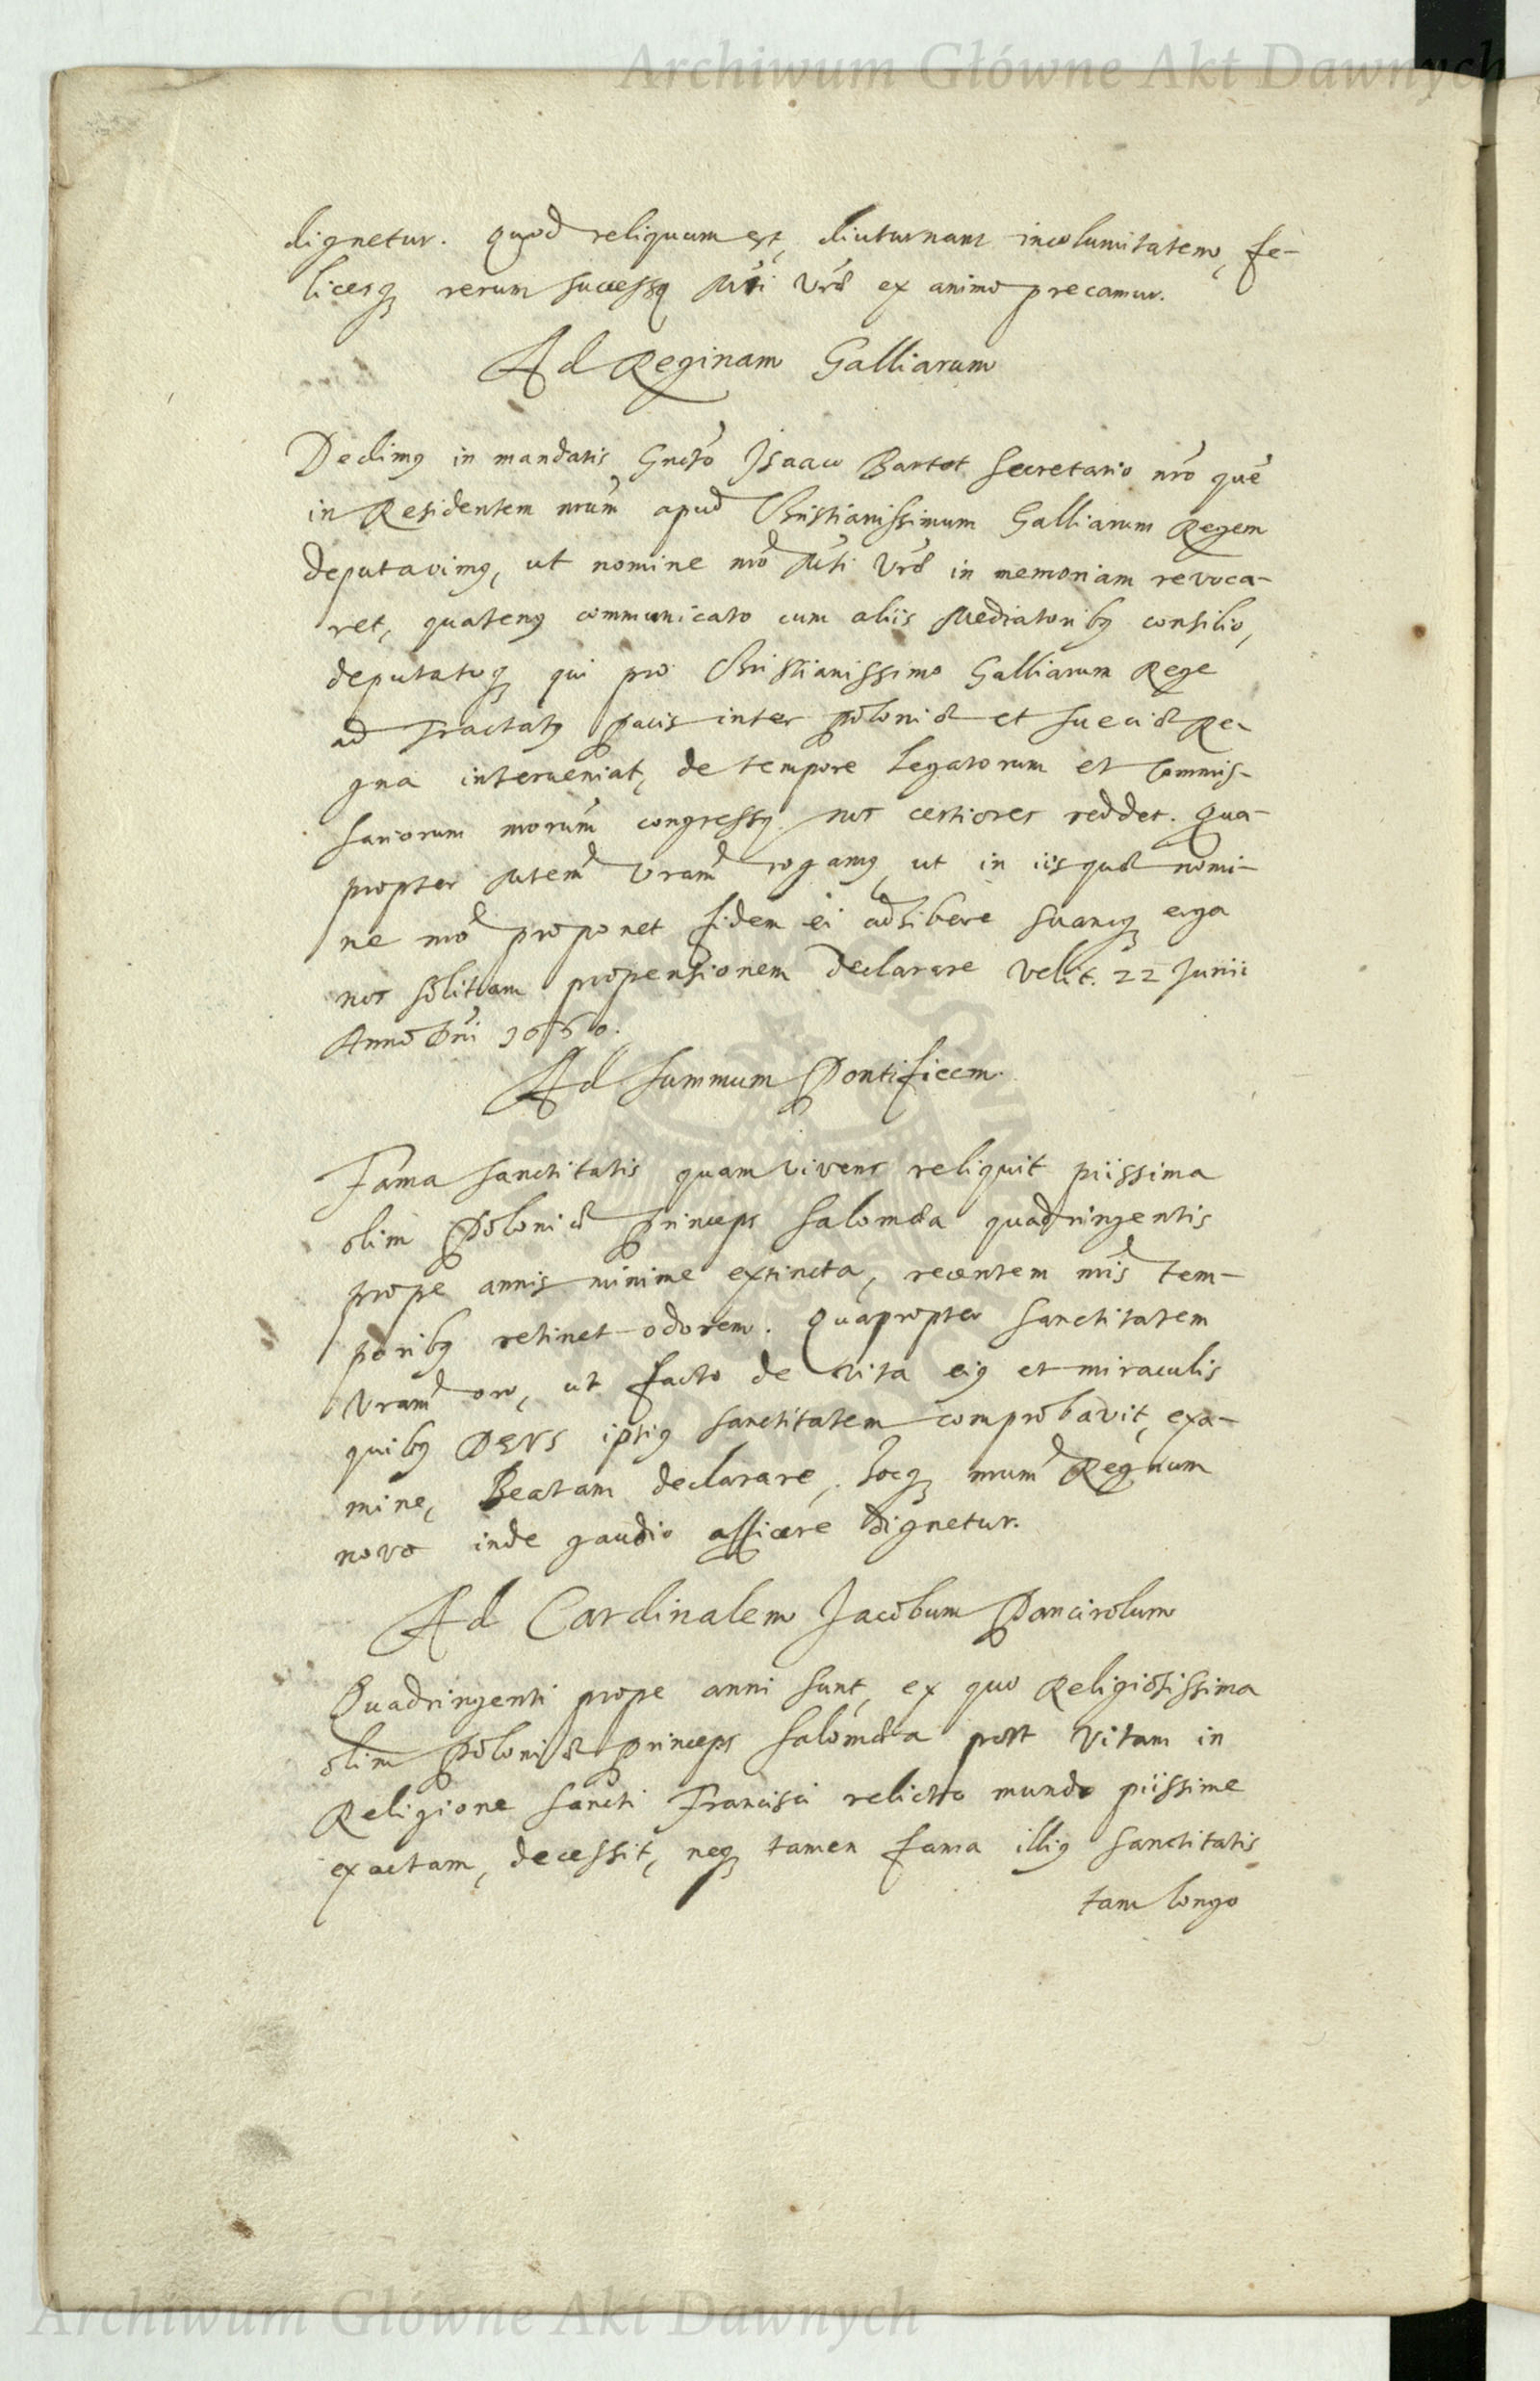 Archiwum Główne Akt Dawnych
dignetur. Quod reliquum est, diuturnam incolumitatem, fe-
licesq; rerum successq Mti Vrae ex animo precamur.
Ad Reginam Galliarum
Dedimq in mandatis Gnoso Isaaco Bartot Secretario nro quē
in Residentem nrum apud Christianissimum Galliarum Regem
deputavimq, ut nomine nro Mti Vrae in memoriam revoca-
ret, quatenq communicato cum aliis Mediatoribq consilio,
deputatoq; qui pro Christianissimo Galliarum Rege
ad Tractatq Pacis inter Poloniae et Sueciae Re-
gna interveniat, de tempore Legatorum et Commis-
sariorum nrorum congressq nos certiores reddet. Qua-
propter Mtem Vram rogamq ut in iis quae nomi-
ne nro proponet fidem ei adhibere suamq; erga
nos solitam propensionem declarare velit. 22 Junii
Anno Dni 1650.
Ad Summum Pontificem.
Fama sanctitatis quam vivens reliquit piissima
olim Poloniae Princeps Salomaea quadringentis
prope annis minime extincta, recentem nris tem-
poribq retinet odorem. Quapropter Sanctitatem
Vram oro, ut facto de vita eiq et miraculis
quibq DEVS ipsiq sanctitatem comprobavit, exa-
mine, Beatam declarare, hocq; nrum Regnum
novo inde gaudio afficere dignetur.
Ad Cardinalem Jacobum Pancirolum
Quadringenti prope anni sunt, ex quo Religiosissima
olim Poloniae Princeps Salomaea post vitam in
Religione Sancti Francisci relicto mundo piissime
exactam, decessit, neq; tamen fama illiq sanctitatis
tam longo
Archiwum Główne Akt Dawnych